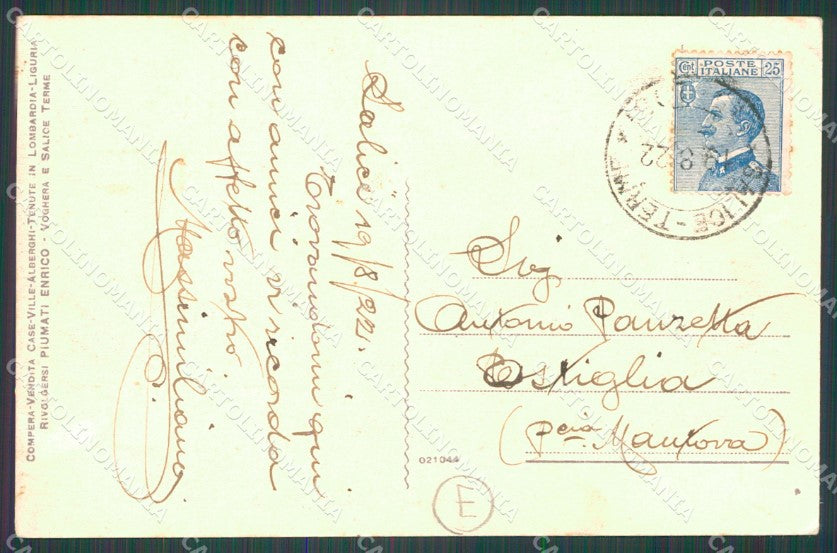 COMPERA-VENDITA CASE-VILLE-ALBERGHI-TENUTE IN LOMBARDIA-LIGURIA
RIVOLGERSI PIUMATI ENRICO - VOGHERA E SALICE TERME
Salice 19/8/221.
Trovandomi qui
con amici vi ricorda
con affetto vostro
Massimiliano
POSTE
ITALIANE
Cent 25
SALICE-TERME
19 8 22
Sig
Antonio Panzetta
Ostiglia
(pcia Mantova)
021044
E
CARTOLINOMANIA